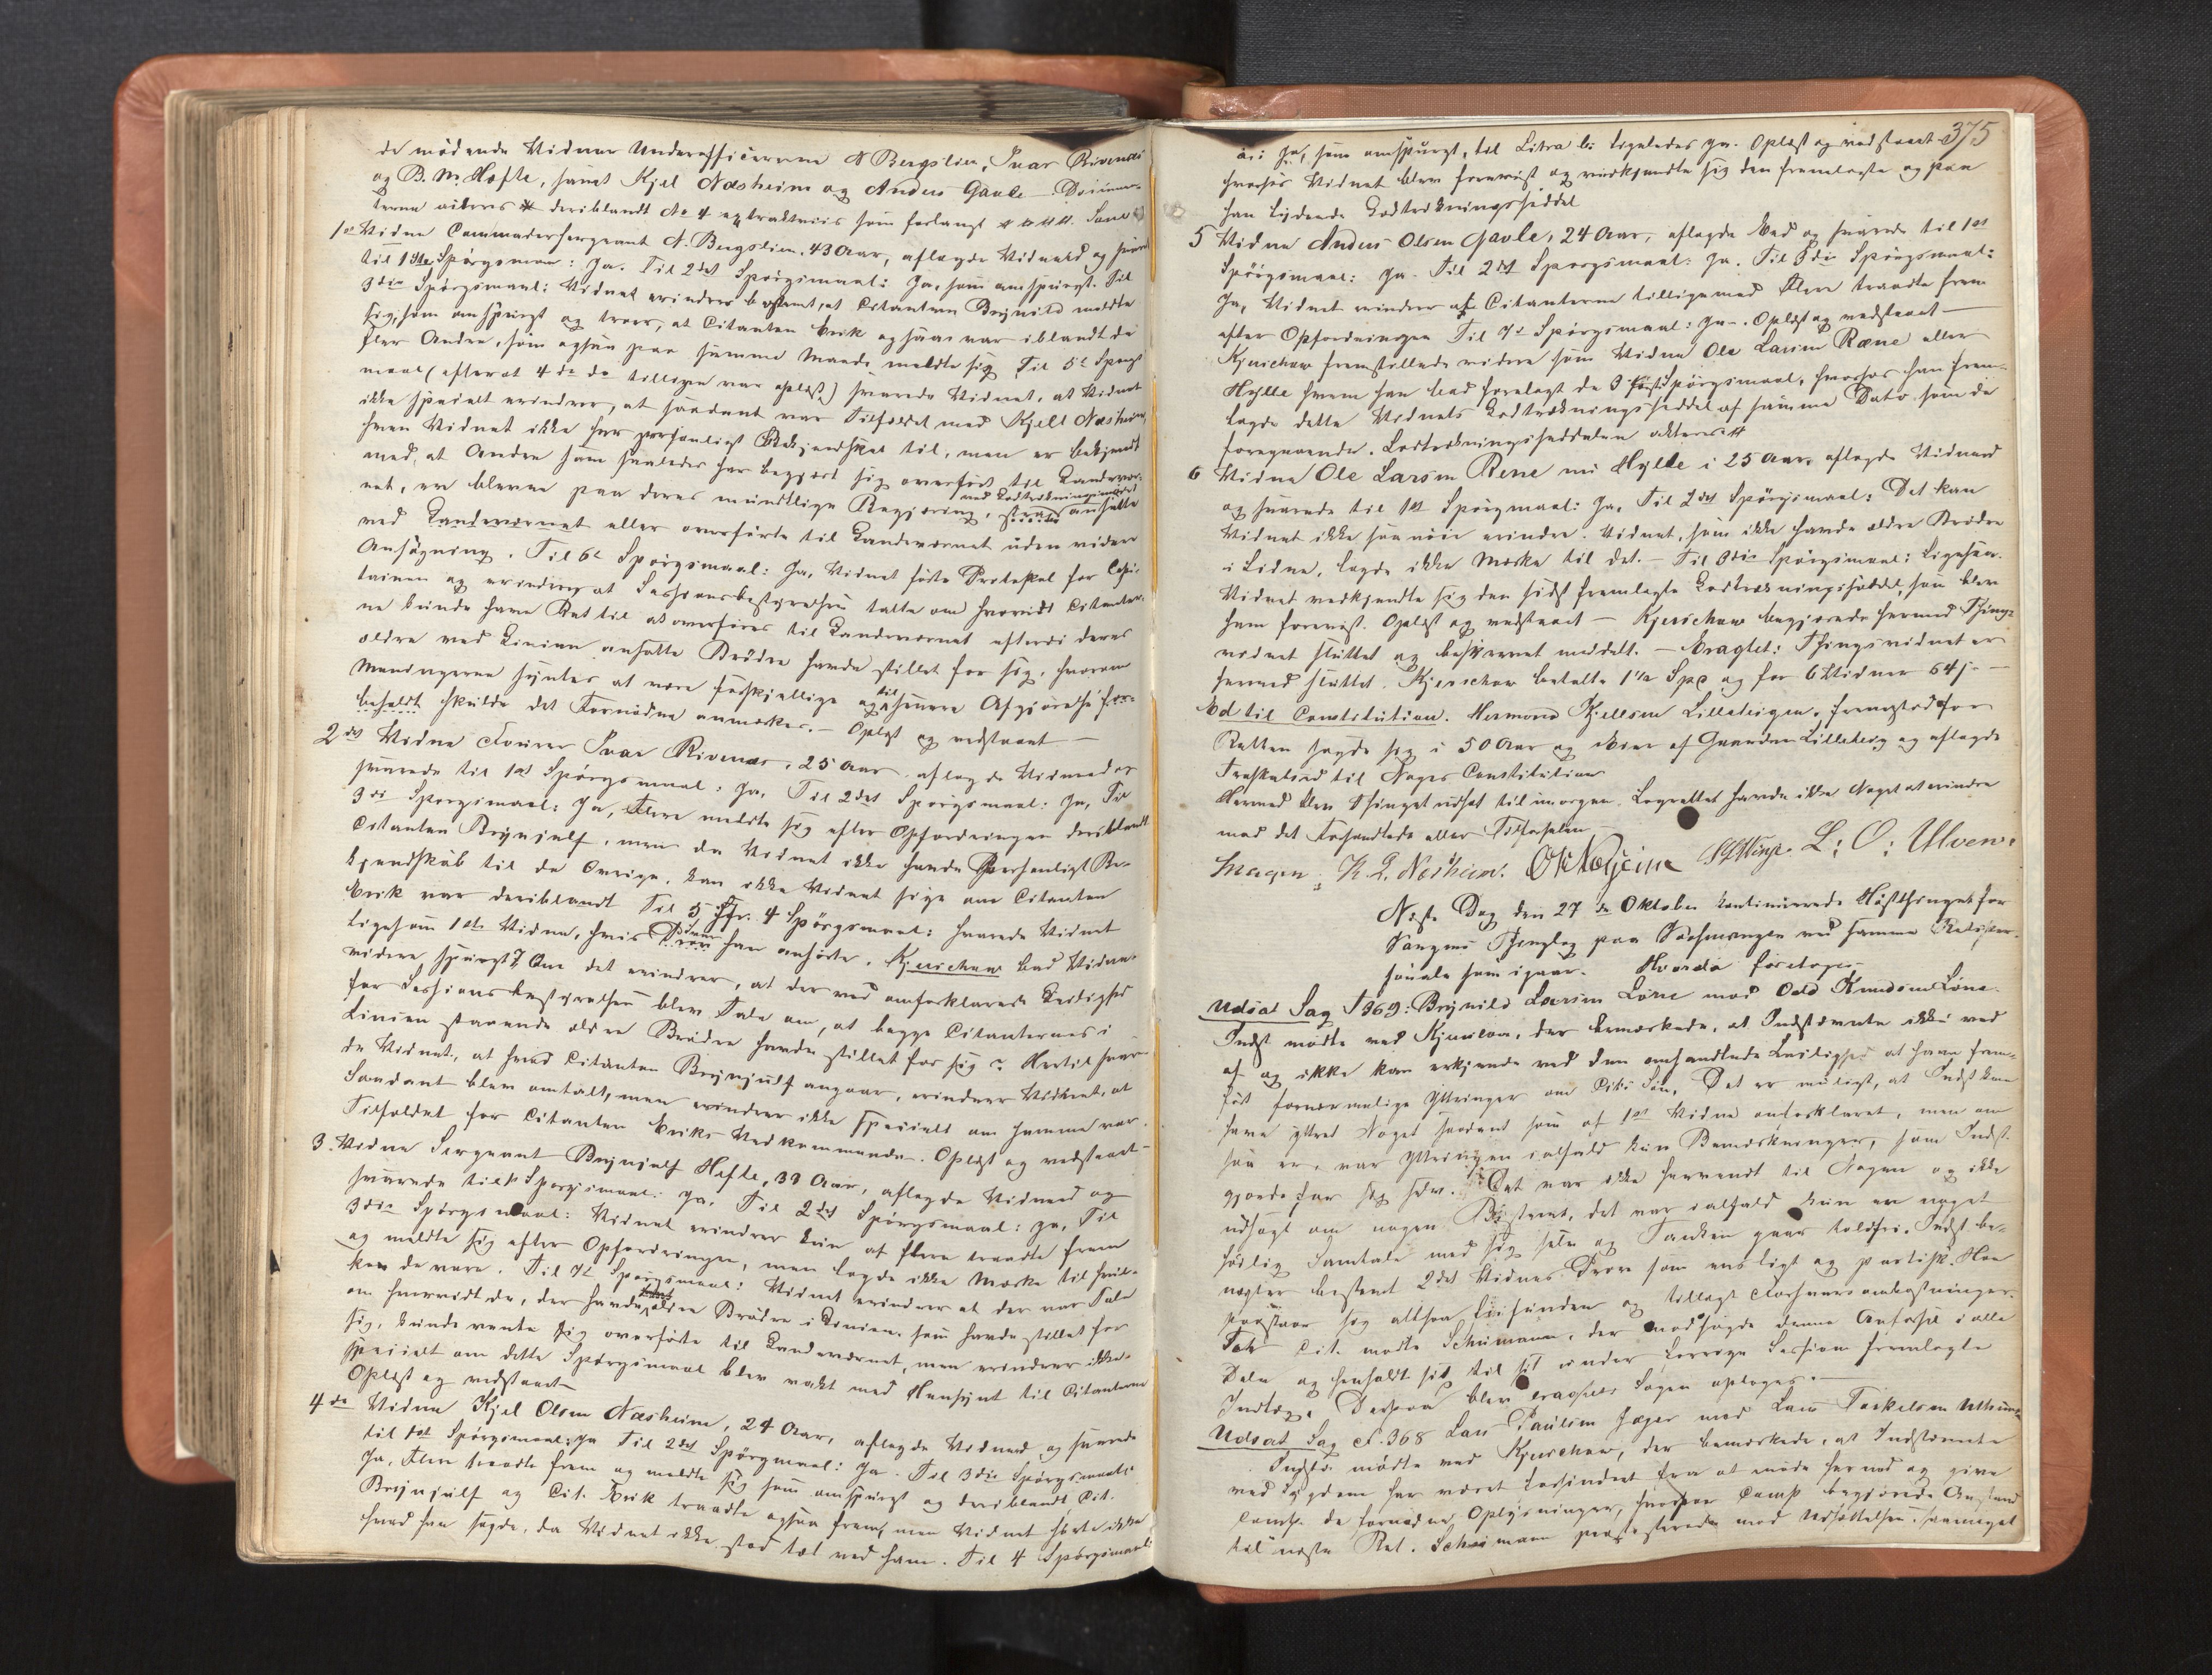 de mødende Vidner Underofficererne N Bergslien, Ivar Rivenæs
og B. M. Hefte, samt Kjel Næsheim og Anders Gavle.
deriblandt No 4 extractviis som forlangt
1ste Vidne Commandersergeant N. Bergslien, 43 Aar, aflagde Vidneed og svarede
til 1ste Spørgsmaal: Ja. Til 2det Spørgsmaal: Ja, som omspurgt. Til
3die Spørgsmaal: Vidnet erindrer bestemt, at Citanten Brynild meldte
sig, som omspurgt og troer, at Citanten Erik ogsaa var iblandt de
fler Andre, som ogsaa paa samme Maade meldte sig. Til 5te Spørgs
maal (efterat 4de do tilligen var oplæst) svarede Vidnet, at Vidnet
ikke specielt erindrer, at saadant var Tilfældet med Kjell Næsheim,
hvem Vidnet ikke har personligt Bekjendtskab til, men er bekjendt
med, at Andre som saaledes har begjært sig overført til Landevær-
net, ere blevne paa deres mundtlige Begjæring, strax ansatte
ved Lodtrækningen
ved Landeværnet eller overførte til Landeværnet uden videre
Ansøgning. Til 6te Spørgsmaal: Ja, Vidnet førte Protokol for Capi-
tainen og erindrer, at Sessionsbestyrelsen talte om hvorvidt Citanter-
ne kunde have Ret til at overføres til Landeværnet efterdi deres
ældre ved Linien ansatte Brødre havde stillet for sig, hvorom
Meningerne syntes at være forskjellige og til senere Afgjørelse for-
beholdt skulde det Fornødne anmærkes. – Oplæst og vedstaaet –
2det Vidne Fourer Ivar Rivenæs, 25 Aar aflagde Vidneed og
svarede til 1ste Spørgsmaal: Ja. Til 2det Spørgsmaal: Ja, Til
3die Spørgsmaal: Ja, Flere meldte sig efter Opfordringen deriblandt
Citanten Brynjulf, men da Vidnet ikke havde Personligt Be-
kjendtskab til de Øvrige, kan ikke Vidnet sige om Citanten
Erik var deriblandt Til 5 Jfr. 4 Spørgsmaal: svarede Vidnet
ligesom 1ste Vidne, hvis Svar han anhørte. Kjerschow bad Vidnet
videre spurgt? Om det erindrer, at der ved omforklarede Leilighed
for Sessionsbestyrelsen blev Tale om, at begge Citanternes i
Linien staaende ældre Brødre havde stillet for sig? Hertil svare-
de Vidnet, at hvad Citanten Brynjulf angaar, erindrer Vidnet, at
Saadant blev omtalt, men erindrer ikke specielt om samme var
Tilfældet for Citanten Eriks Vedkommende. Oplæst og vedstaaet –
3. Vidne Sergeant Brynjulf Hefte, 39 Aar, aflagde Vidneed og
svarede til 1 Spørgsmaal: Ja. Til 2det Spørgsmaal: Ja, Til
3die Spørgsmaal: Vidnet erindrer kun at flere traadte frem
og meldte sig efter Opfordringen, men lagde ikke Mærke til hvil-
ken de vare. Til 7de Spørgsmaal: Vidnet erindrer at der var Tale
om hvorvidt de, der havde ældre Brødre i Linien, som havde stillet for
sig, kunde vente sig overførte til Landeværnet, men erindrer ikke
specielt om dette Spørgsmaal blev vakt med Hensyn til Citanterne
Oplæst og vedstaaet
4de Vidne Kjel Olsen Næsheim, 24 Aar, aflagde Vidneed og svarede
til 1ste Spørgsmaal: Ja Til 2det Spørgsmaal: Ja. Til 3die Spørgsmaal:
Ja, Flere traadte frem og meldte sig som omspurgt og deriblandt Cit.
Brynjulf og Cit. Erik traadte ogsaa frem, men Vidnet hørte ikke
hvad han sagde, da Vidnet ikke stod tæt ved ham. Til 4 Spørgsmaal:
375
a: Ja, som omspurgt, til Litra b: ligeledes ja. Oplæst og vedstaaet
hvorhos Vidnet blev foreviist og vedkjendte sig den fremlagte og paa
han lydende Lodtrækningsseddel
5 Vidne Anders Olsen Gavle, 24 Aar, aflagde Eed og svarede til 1ste
Spørgsmaal: Ja. Til 2det Spørgsmaal: Ja. Til 3die Spørgsmaal:
Ja, Vidnet erindrer at Citanterne tilligemed Flere traadte frem
efter Opfordringen Til 7de Spørgsmaal: Ja –. Oplæst og vedstaaet –
Kjerschow fremstillede videre som Vidne Ole Larsen Rene eller
Hylle hvem han bad forelagt de 3 første Spørgsmaal, hvorhos han frem-
lagde dette Vidnets Lodtrækningsseddel af samme Dato som de
foregaaende. Lodtrækningssedlen akteres
6 Vidne Ole Larsen Rene nu Hylle i 25 Aar aflagde Vidneed
og svarede til 1ste Spørgsmaal: Ja, Til 2det Spørgsmaal: Det kan
Vidnet ikke saa nøie erindre. Vidnet, som ikke havde ældre Brødre
i Linien, lagde ikke Mærke til det. – Til 3die Spørgsmaal: Ligesaa.
Vidnet vedkjendte sig den sidst fremlagte Lodtrækningsseddel, som blev
ham foreviist. Oplæst og vedstaaet – Kjerschow begjærede hermed Things-
vidnet sluttet og beskrevet meddelt. – Eragtet: Thingsvidnet er
hermed sluttet. Kjerschow betalte 1½ Spd og for 6 Vidner 64 s –
Ed til Constitution. Hermond Kjellsen Lilleteigen, fremstod for
Retten sagde sig i 50 Aar og Eier af Gaarden Lilleteig og aflagde
Troskabsed til Norges Constitution
Hermed blev Thinget udsat til imorgen. Lagrettet havde ikke Noget at erindre
mod det Forhandlede eller Tilførselen
K. L. Næsheim. L: O: Ulven.
Næste Dag den 27de Oktober kontinuerede Høstthinget for
Vangens Thinglag paa Vossevangen ved samme Retsper-
sonale som igaar. Hvorda foretoges
Udsat Sag No 369: Brynild Larsen Løne mod Odd Knudsen Løne.
Indst mødte ved Kjerschow, der bemærkede, at Indstævnte ikke ved
af og ikke kan erkjende ved den omhandlede Leilighed at have frem-
ført fornærmelige Yttringer om Cits Søn. Det er muligt, at Indst kan
have yttret Noget saadant som af 1ste Vidne omforklaret, men om
saa er, var Yttringen ialfald kun Bemærkninger, som Indst.
gjorde for sig selv. Det var ikke henvendt til Nogen og ikke
udsagt om nogen Bestemt, det var ialfald kun en noget
høilig Samtale med sig selv og Tanken gaar toldfri. Indst be-
nægter bestemt 2det Vidnes Prov som uvorligt og partisk. Han
paastaar sig altsaa frifunden og tillagt Forsvarsomkostninger.
For Cit. mødte Schumann, der modsagde denne Anførsel i alle
Dele og henholdt sig til sit under forrige Session fremlagte
Indlæg. Derpaa blev eragtet Sagen optages. –
Udsat Sag No. 368 Lars Paulsen Jæger mod Lars Torkelsen
Indst. mødte ved Kjerschow, der bemærkede, at Indstævnte
ved Sygdom har været forhindret fra at møde herved og give
Comp. de fornødne Oplysninger, hvorfor Comp. begjærede Anstand
til næste Ret. Schumann protesterede mod Udsættelsen, saameget